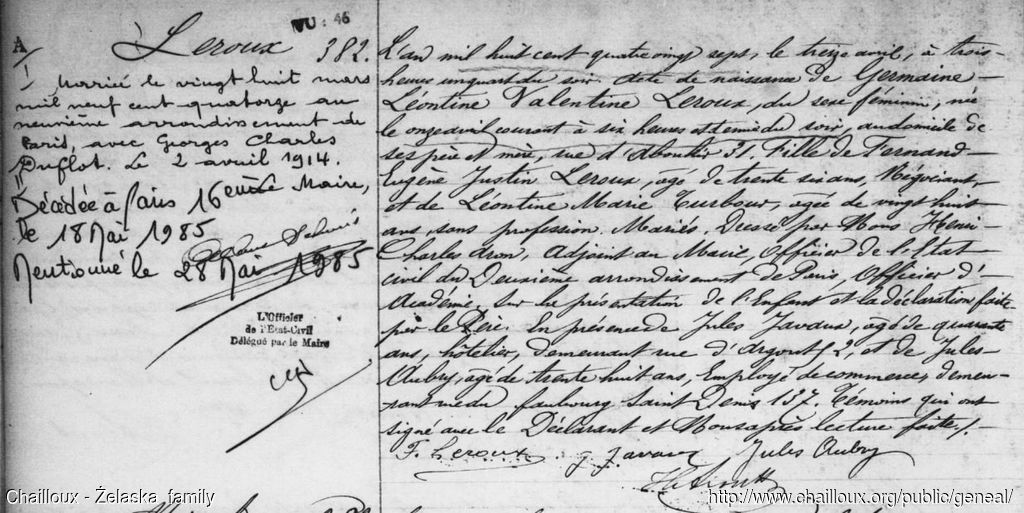 VU : 46
A
Leroux 382.
1 Mariée le vingt huit mars
mil neuf cent quatorze au
neuvième arrondissement de
Paris, avec Georges Charles
Duflot. Le 2 avril 1914.
Décédée à Paris 16 eme Mairie,
le 18 Mai 1985
Mentionné le 28 Mai 1985
L'Officier
de l'Etat-Civil
Délégué par le Maire
L'an mil huit cent quatre vingt sept, le treize avril, à trois
heures un quart du soir. Acte de naissance de Germaine
Léontine Valentine Leroux, du sexe féminin, née
le onze avril courant à six heures et demie du soir, au domicile de
ses père et mère, rue d'Aboukir 31. Fille de Fernand
Eugène Justin Leroux, âgé de trente six ans, Négociant,
et de Léontine Marie Turbour, agée de vingt huit
ans, sans profession. Mariés. Dressé par Nous Henri
Charles Aron, Adjoint au Maire, Officier de l'Etat
civil du Deuxième arrondissement de Paris, Officier d'
Académie. Sur la présentation de l'Enfant et la déclaration faite
par le Père. En présence de Jules Javaux, âgé de quarante
ans, hôtelier, demeurant rue d'Argout 2, et de Jules
Aubry, agé de trente huit ans, Employé de commerce, demeu-
rant rue du faubourg Saint Denis 137. Témoins qui ont
signé avec le Déclarant et Nous après lecture faite./.
F. Leroux J Javaux Jules Aubry
Chailloux - Żelaska family
http://www.chailloux.org/public/geneal/